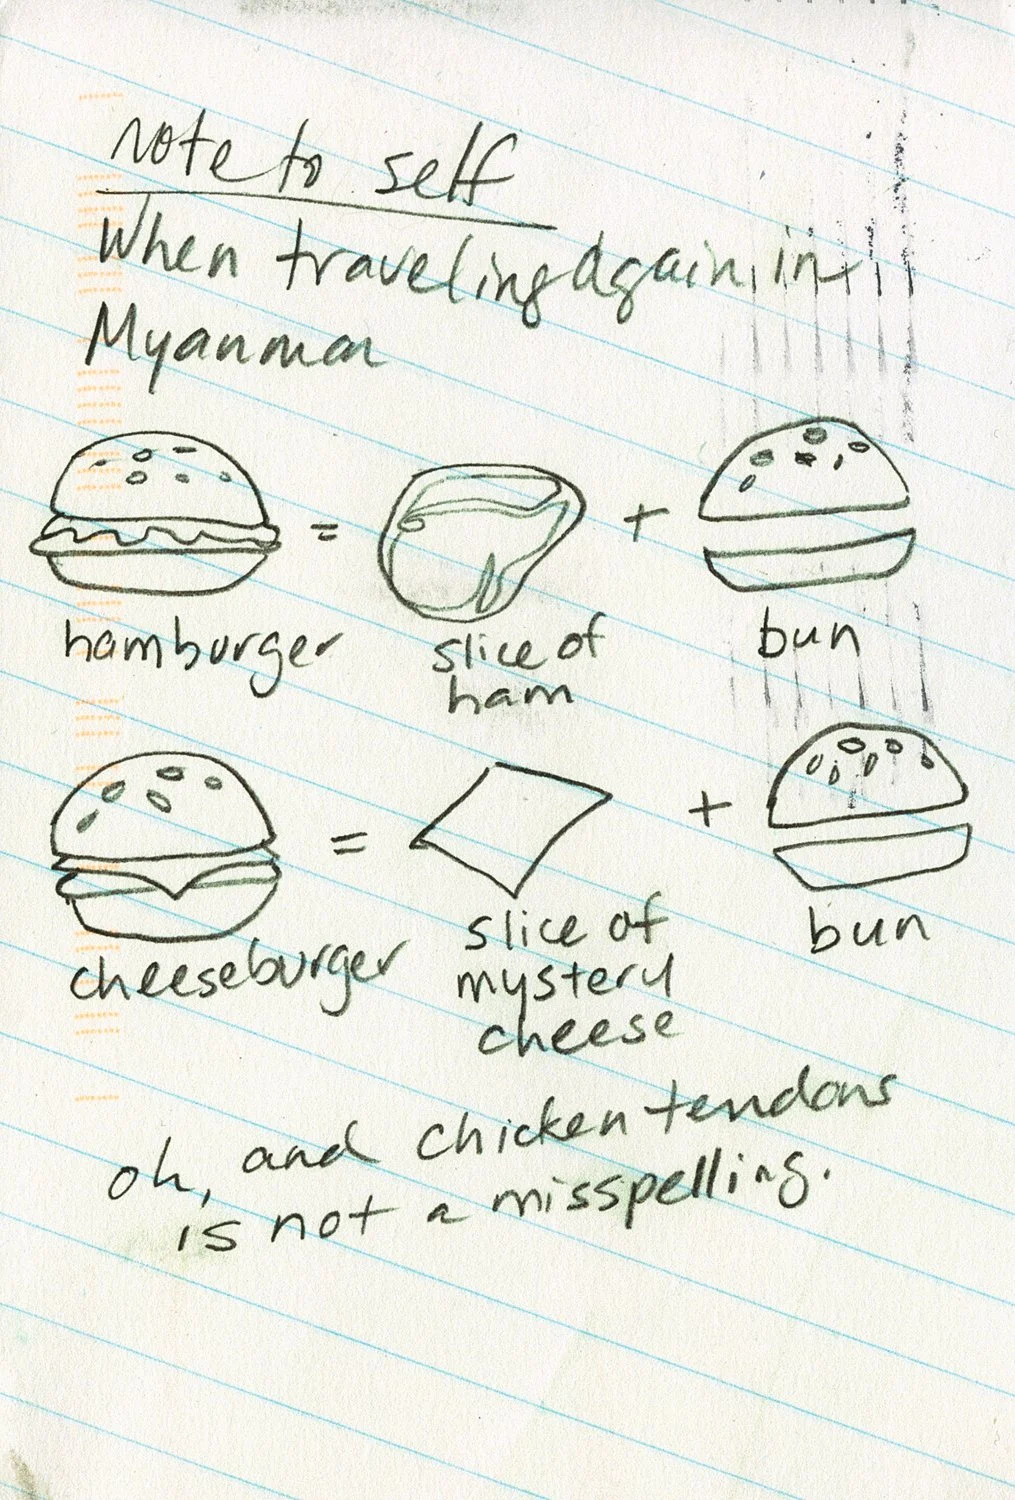 note to self
When traveling again in
Myanmar
=
+
hamburger
slice of
ham
bun
=
+
cheeseburger
slice of
mystery
cheese
bun
oh, and chicken tendons
is not a misspelling.